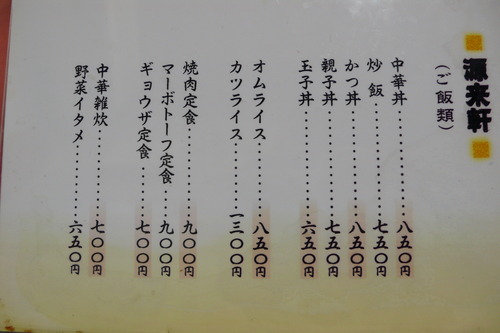 源来軒
（ご飯類）
中華丼……………八五〇円
炒飯……………七五〇円
かつ丼……………八五〇円
親子丼……………七五〇円
玉子丼……………六五〇円
オムライス……………八五〇円
カツライス……………一三〇〇円
焼肉定食……………九〇〇円
マーボトーフ定食………九〇〇円
ギョウザ定食……………七〇〇円
中華雑炊……………七〇〇円
野菜イタメ……………六五〇円